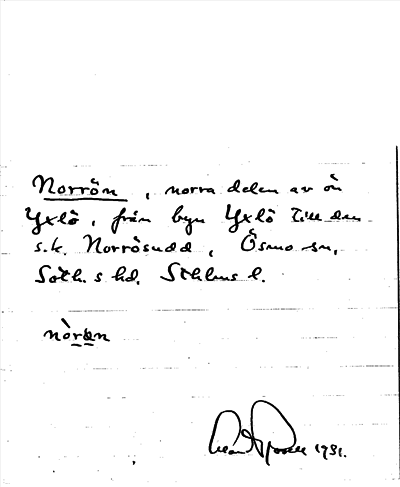 Norrön, norra delen av ön
Yxlö, från byn Yxlö till den
s.k. Norrösudd, Ösmo sn,
Soth.s hd, Sthlms l.
1931.